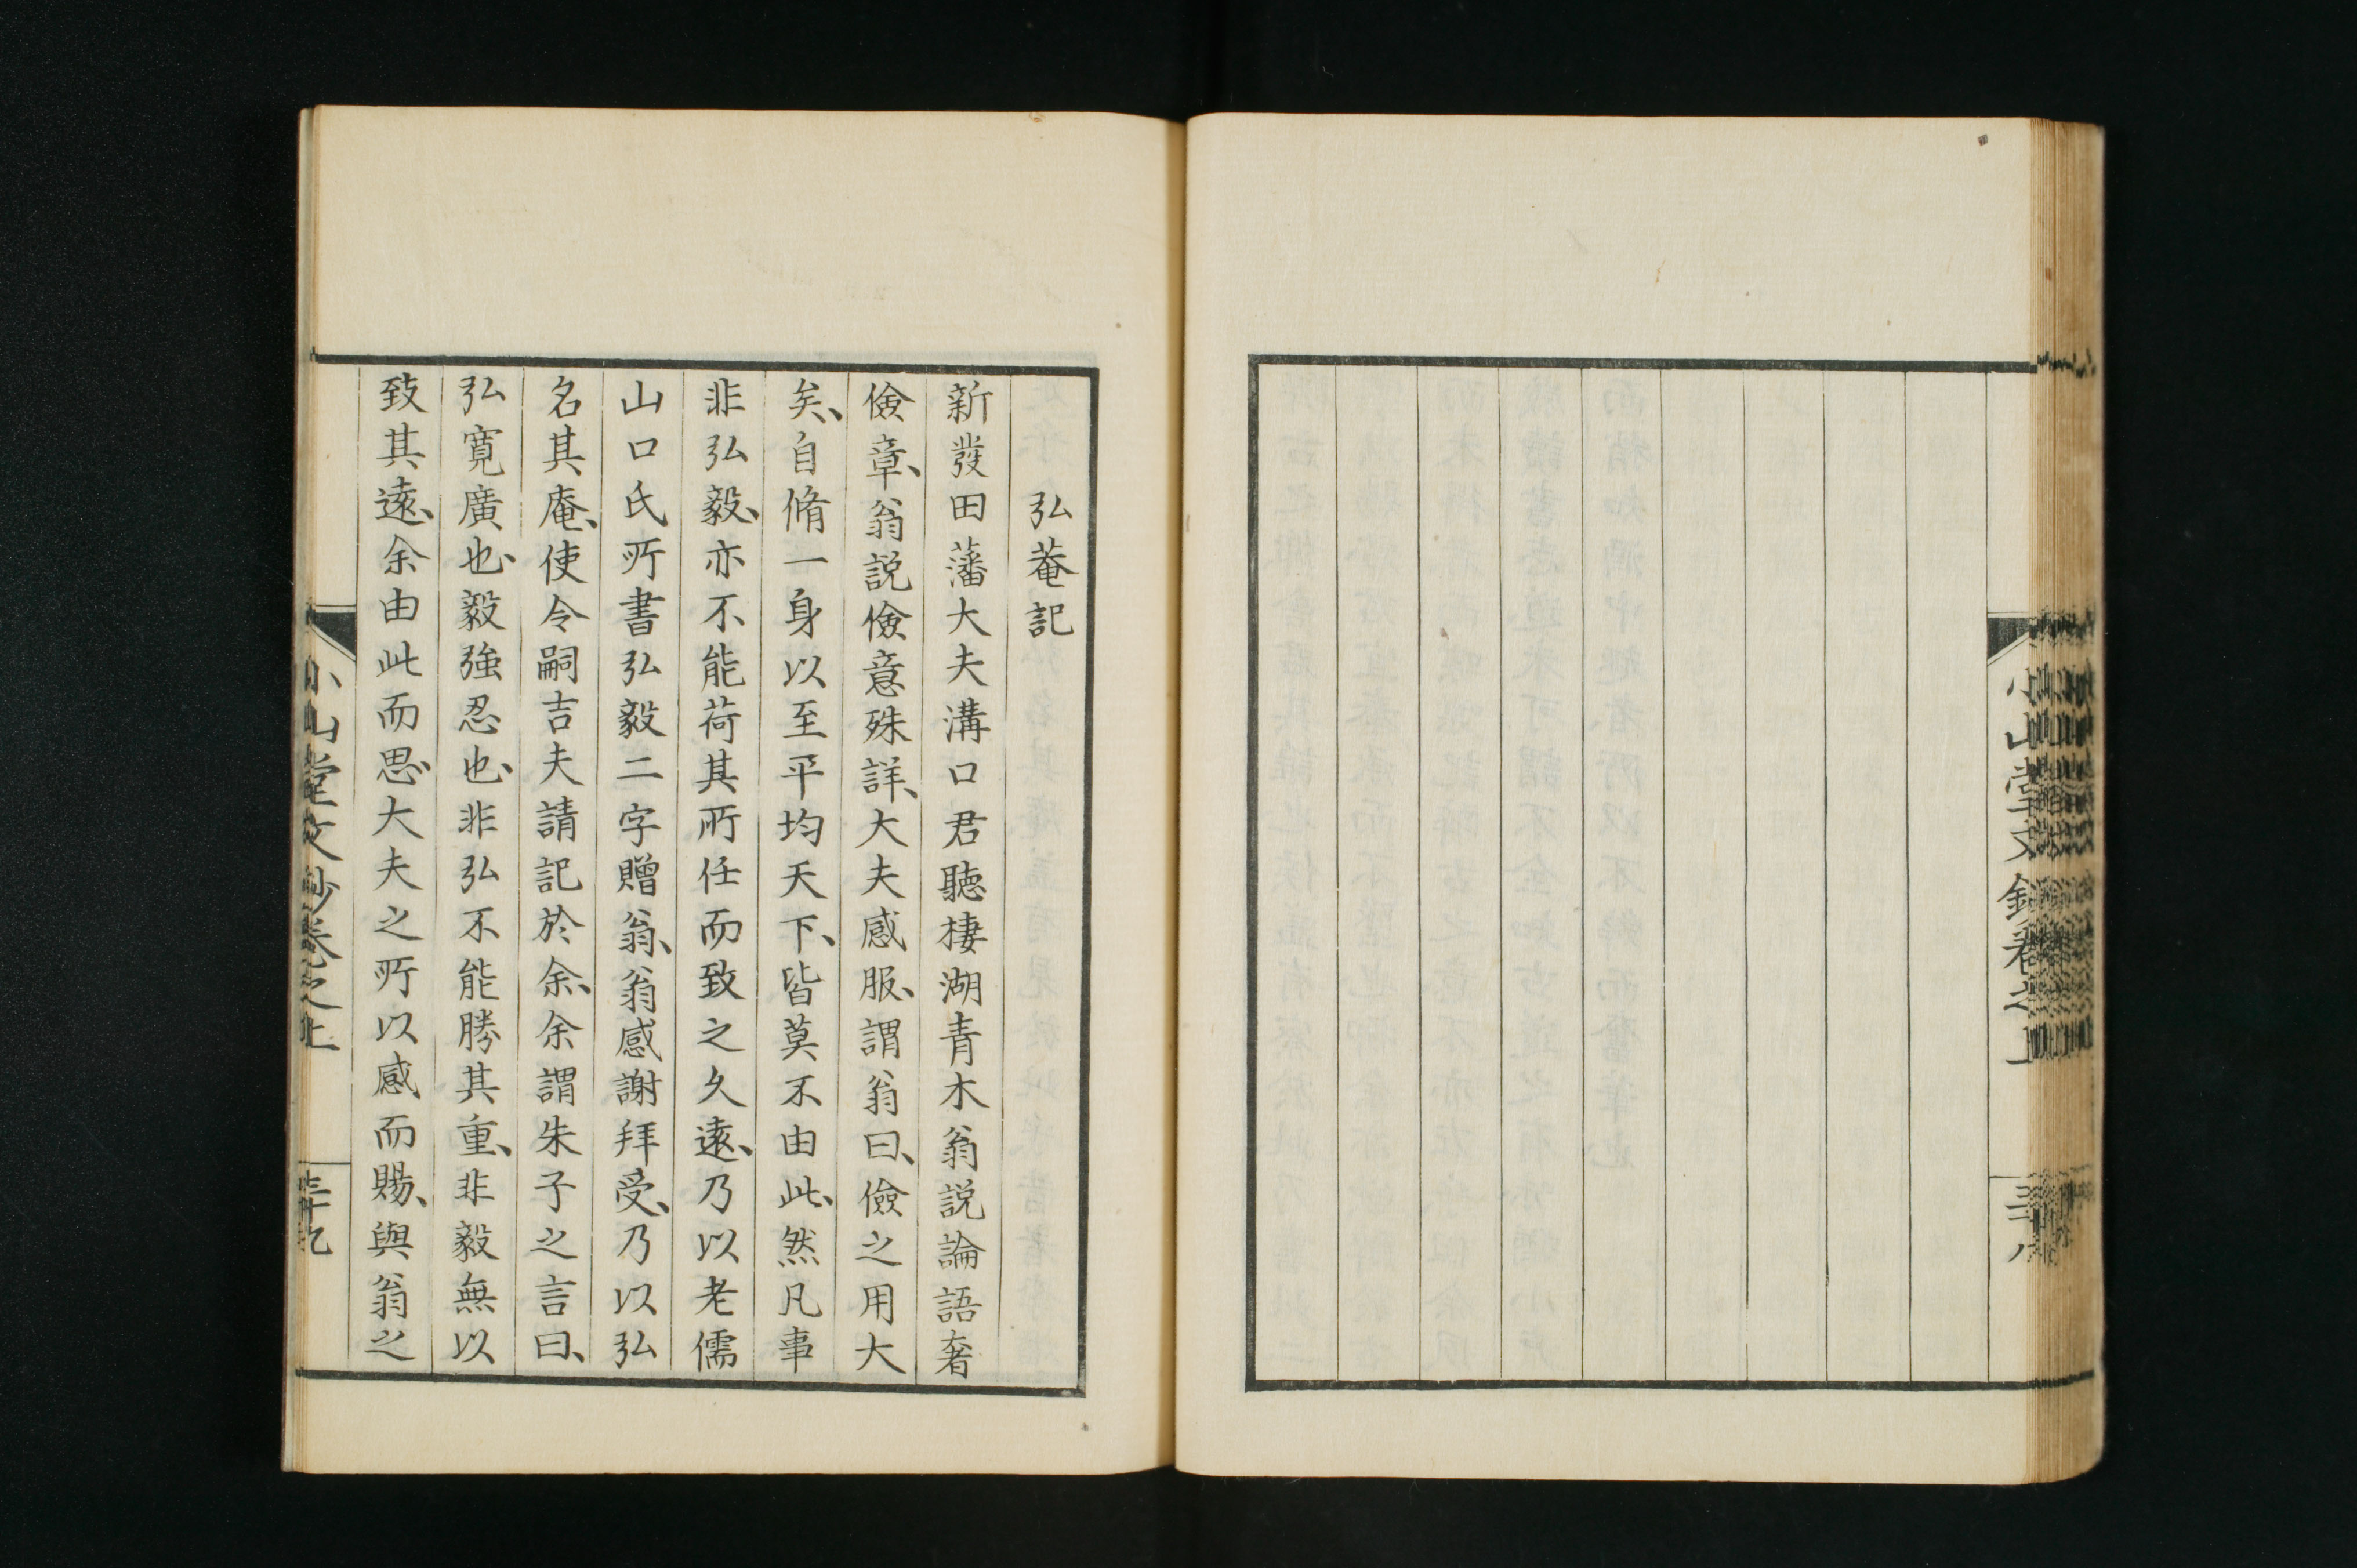 小山堂文鈔卷之上
三十八
弘菴記
新發田藩大夫溝口君聽棲湖青木翁説論語奢
儉章、翁説儉意殊詳、大夫感服、謂翁曰、儉之用大
矣、自脩一身以至平均天下、皆莫不由此、然凡事
非弘毅、亦不能荷其所任而致之久遠、乃以老儒
山口氏所書弘毅二字贈翁、翁感謝拜受、乃以弘
名其庵、使令嗣吉夫請記於余、余謂朱子之言曰、
弘寬廣也、毅強忍也、非弘不能勝其重、非毅無以
致其遠、余由此而思、大夫之所以感而賜、與翁之
小山堂文鈔卷之上
三十九